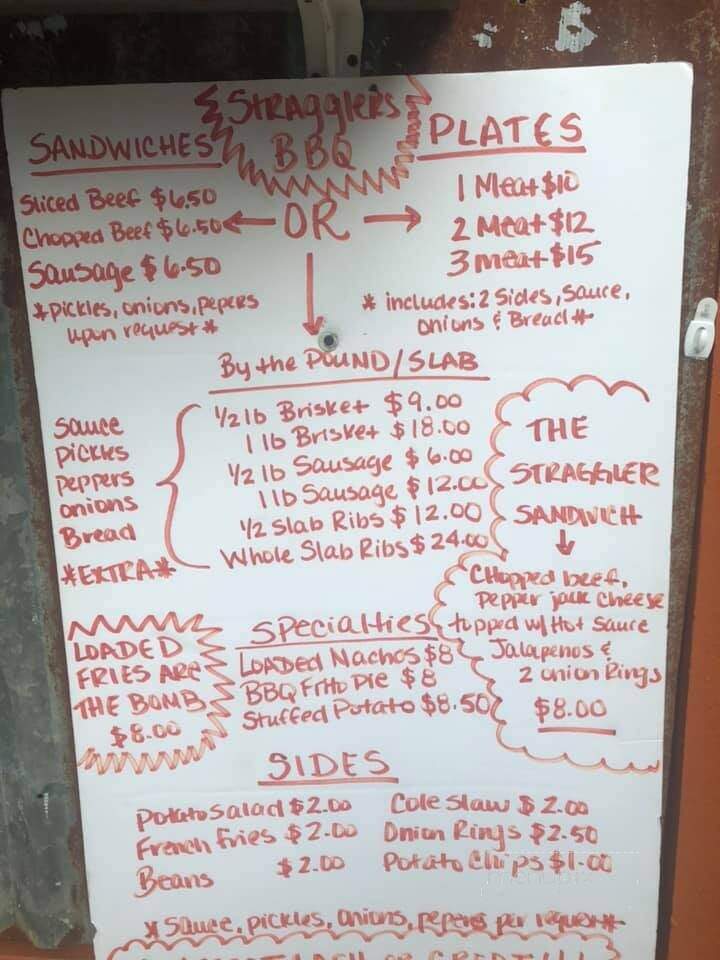 STRAGGLERS
BBQ
SANDWICHES
Sliced Beef $6.50
Chopped Beef $6.50
Sausage $6.50
*Pickles, onions, pepers
upon request*
OR
PLATES
1 Meat $10
2 Meat $12
3 meat $15
* includes: 2 Sides, Sauce,
Onions & Bread *
By the POUND/SLAB
Sauce
Pickles
Peppers
onions
Bread
*EXTRA*
1/2 lb Brisket $9.00
1 lb Brisket $18.00
1/2 lb Sausage $6.00
1 lb Sausage $12.00
1/2 Slab Ribs $12.00
Whole Slab Ribs $24.00
THE
STRAGGLER
SANDWICH
Chopped beef,
Pepper jack Cheese
topped w/ Hot Sauce
Jalapenos &
2 onion Rings
$8.00
LOADED
FRIES ARE
THE BOMB
$8.00
Specialties
LOADED Nachos $8
BBQ Frito Pie $8
Stuffed Potato $8.50
SIDES
Potato Salad $2.00
French Fries $2.00
Beans $2.00
Cole Slaw $2.00
Onion Rings $2.50
Potato Chips $1.00
* Sauce, Pickles, Onions, Pepers per request*